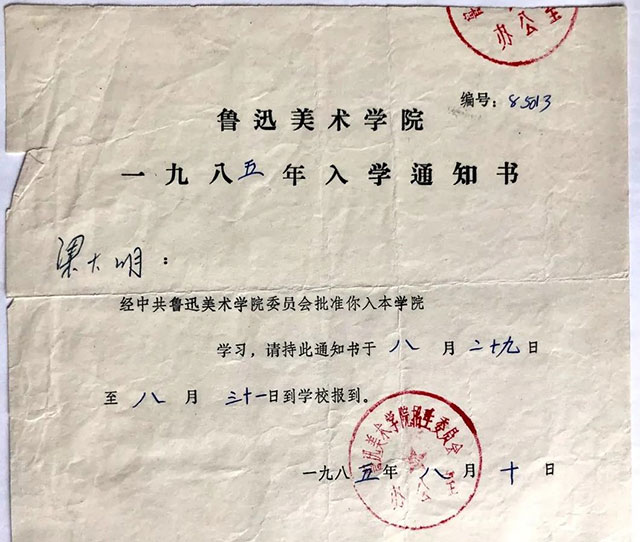 办公室
编号：85013
鲁迅美术学院
一九八五年入学通知书
梁大明：
经中共鲁迅美术学院委员会批准你入本学院
学习，请持此通知书于八月二十九日
至八月三十一日到学校报到。
鲁迅美术学院招生委员会
办公室
一九八五年八月十日